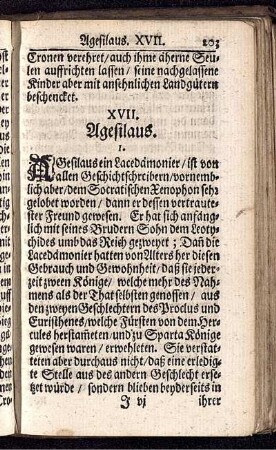 Agesilaus. XVII. 203
Cronen verehret/auch ihme äherne Seu-
len auffrichten lassen/ seine nachgelassene
Kinder aber mit ansehnlichen Landgütern
beschencket.
XVII.
Agesilaus.
I.
AGesilaus ein Lacedämonier/ ist von
allen Geschichtschreibern/vornemb-
lich aber/dem Socratischen Xenophon sehr
gelobet worden/ dann er dessen vertraute-
ster Freund gewesen. Er hat sich anfäng-
lich mit seines Brudern Sohn dem Leoty-
chides umb das Reich gezweyet; Dañ die
Lacedämonier hatten von Alters her diesen
Gebrauch und Gewohnheit/ daß sie jeder-
zeit zween Könige/ welche mehr des Nah-
mens als der That selbsten genossen/ aus
den zweyen Geschlechtern des Proclus und
Euristhenes/welche Fürsten von dem Her-
cules herstam̃eten/und zu Sparta Könige
gewesen waren/ erwehleten. Sie verstat-
teten aber durchaus nicht/ daß eine erledig-
te Stelle aus des andern Geschlecht erse-
tzet würde/ sondern blieben beyderseits in
J vj ihrer